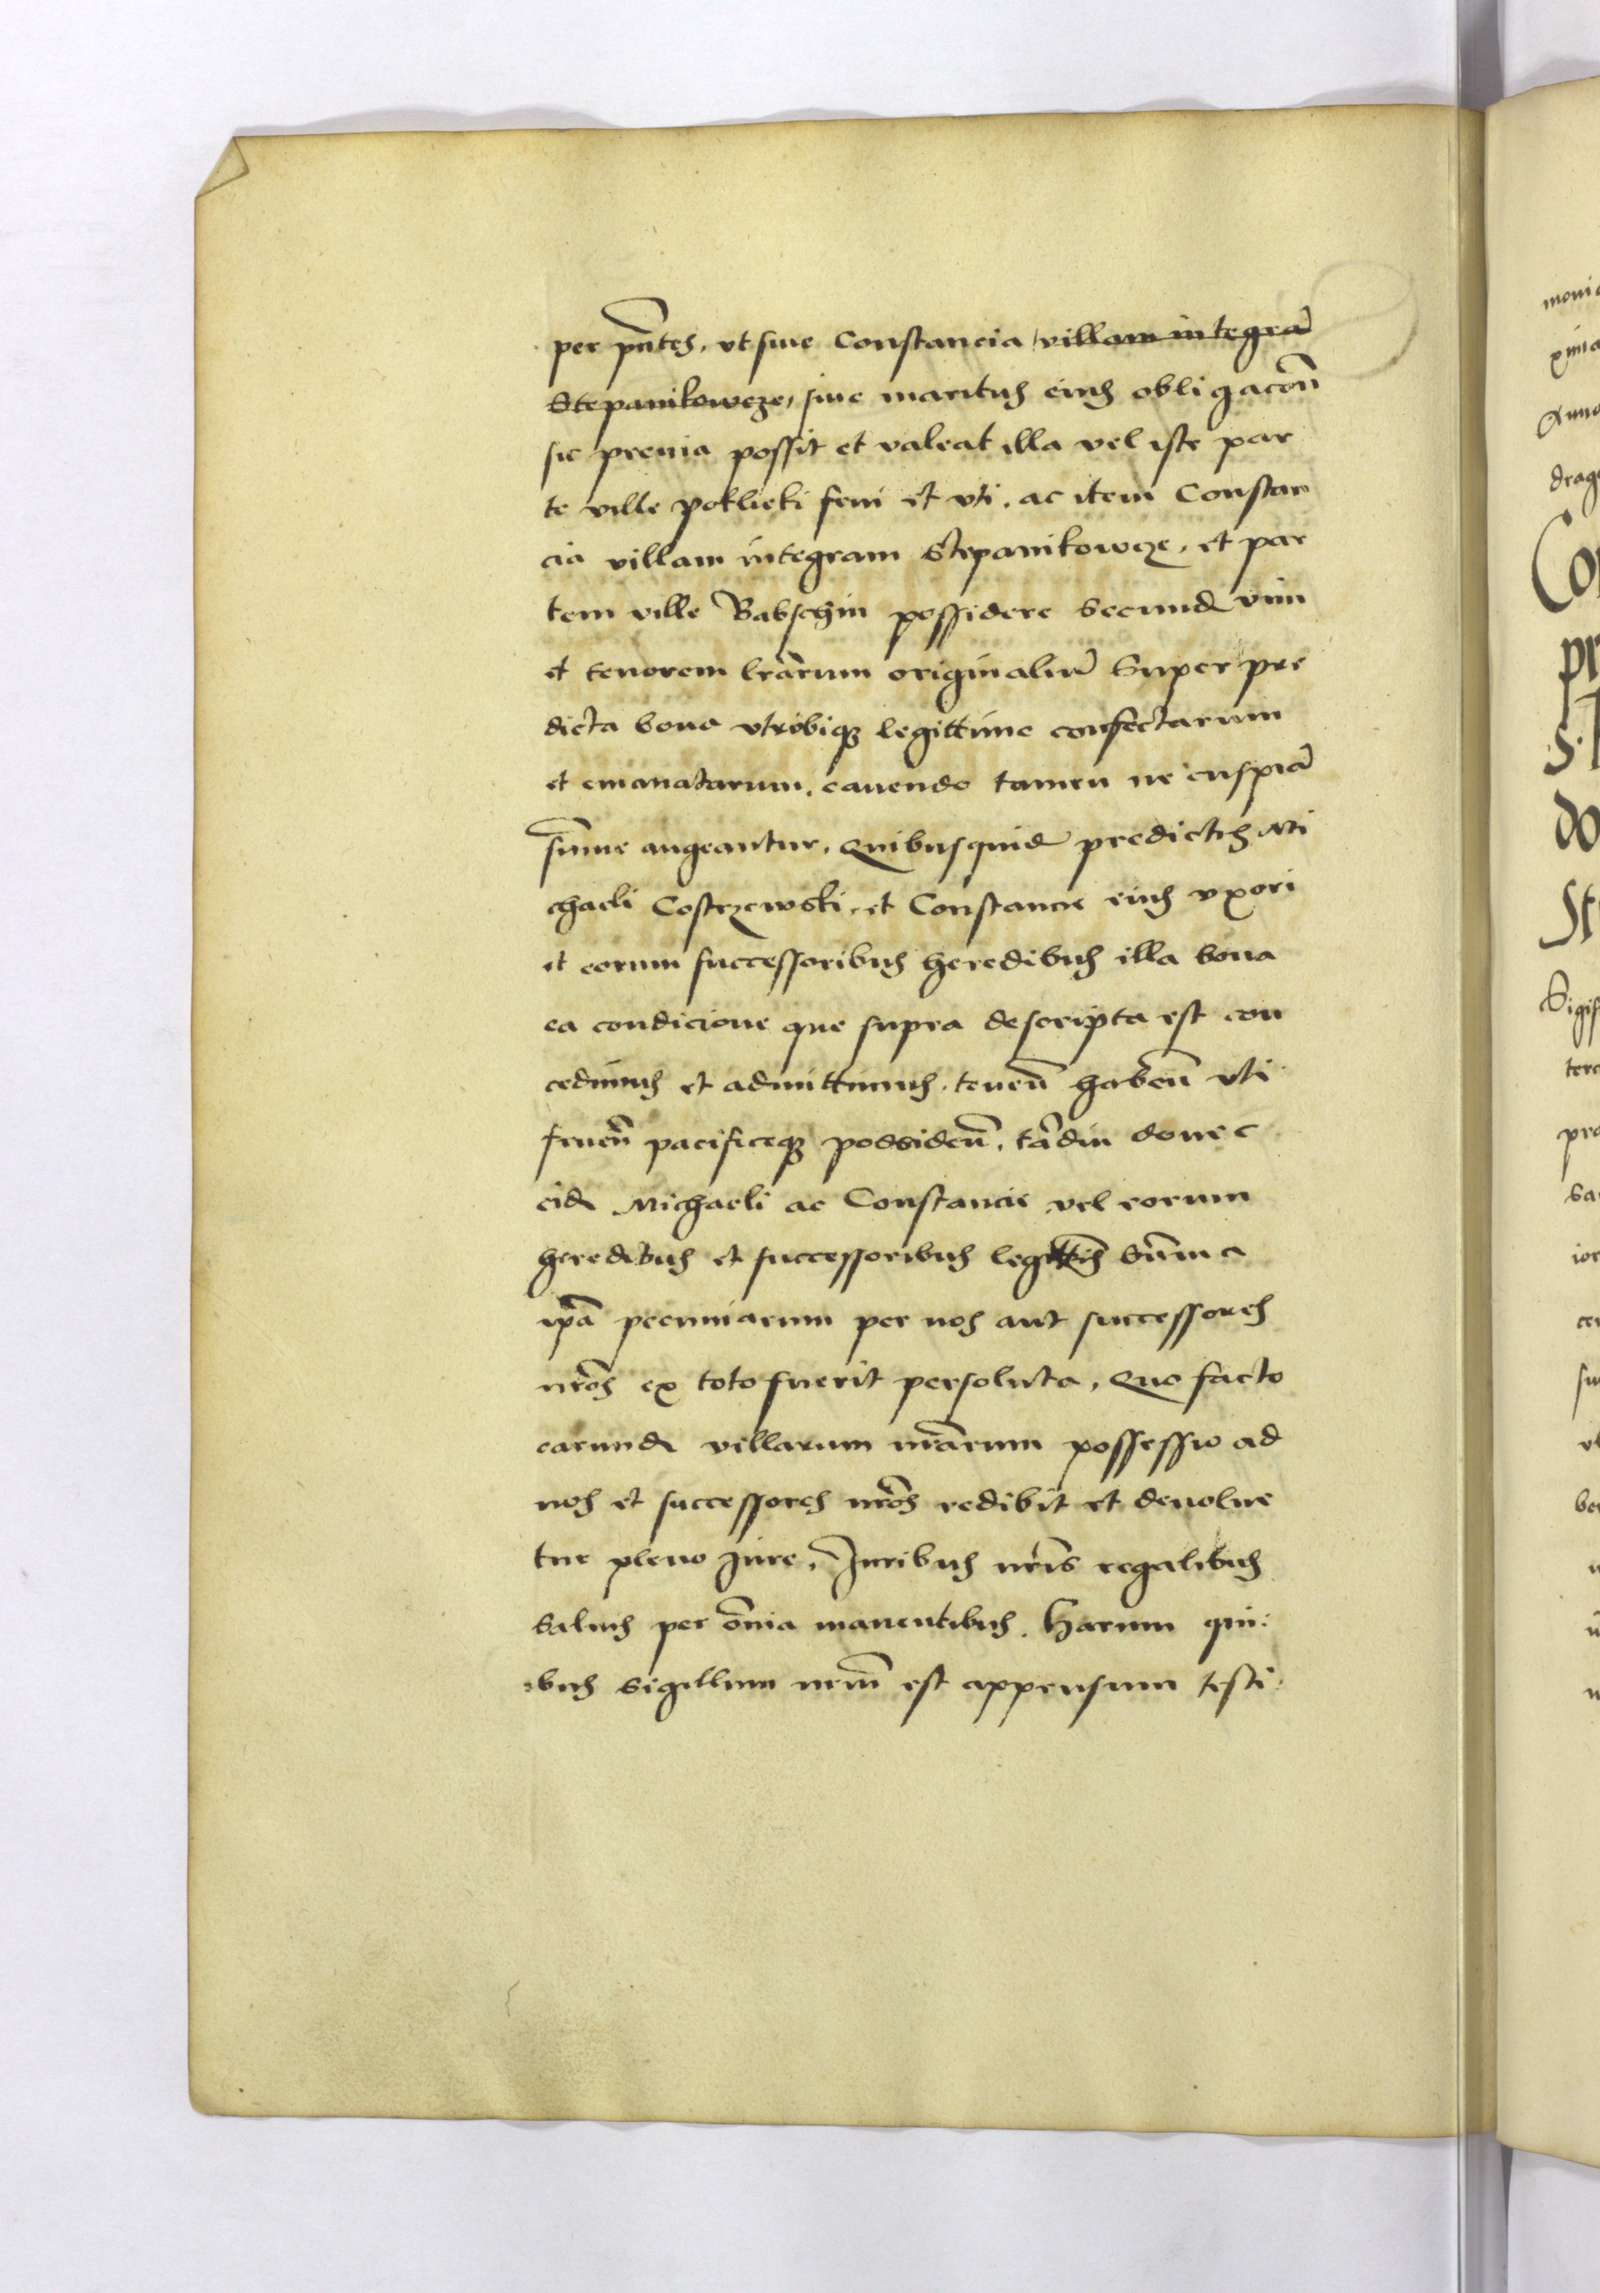 per pn̄tes, vt siue Constancia villam integrā
Stepanikowcze, siue maritus eius obligacōn̄
sic premia possit et valeat illa vel iste par
te ville poklieti frui et vti, ac item Constan
cia villam integram Stepanikowcze, et par
tem ville Babschin possidere secund vim
et tenorem lrārum originaliū super pre
dicta bona vtrobiqꝫ legittime confectarum
et emanatarum, cauendo tamen ne cuspiā
sum̄e augeantur, Quibusquid predictis Mi
chaeli Costrzewski, et Constancie eius vxori
et eorum successoribus heredibus illa bona
ea condicione que supra descripta est con
cedimus et admittimus, tenen̄ haben̄ vti
fruen̄ pacificeqꝫ possiden̄, tādiu donec
eid Michaeli ac Constancie vel eorum
heredibus et successoribus legittīs sum̄a
ipā pecuniarum per nos aut successores
nrōs ex toto fuerit persoluta, Quo facto
earund villarum nrārum possessio ad
nos et successores nrōs redibit et deuolue
tur pleno Jure, Juribus nrīs regalibus
saluis per om̄ia manentibus. Harum qui:
bus sigillum nrūm est appensum testi: